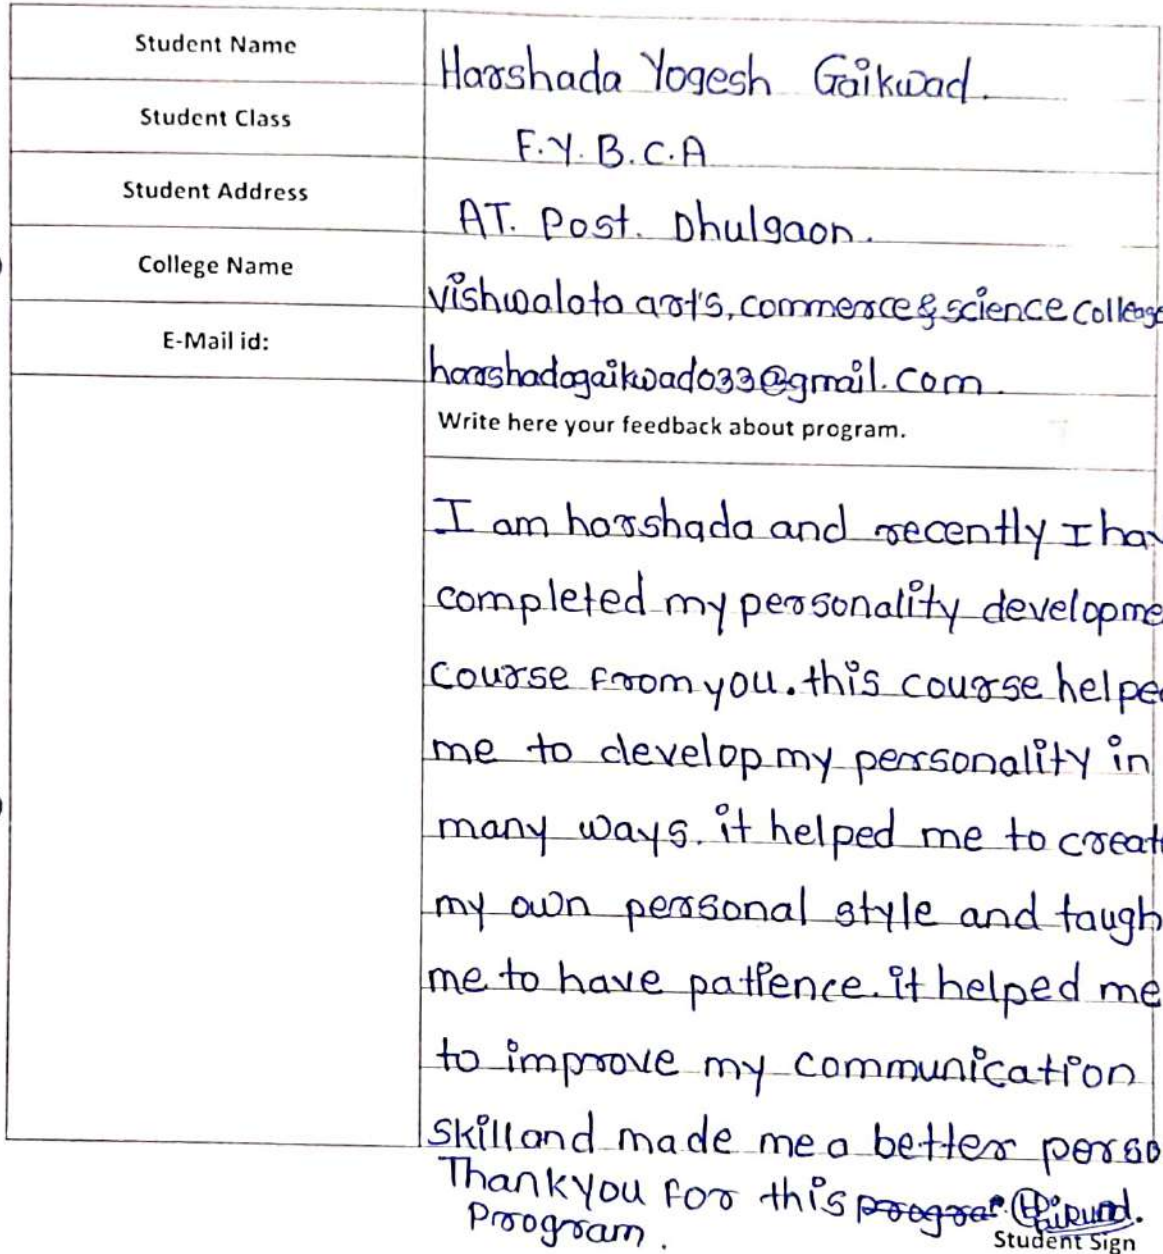 Student Name
Harshada Yogesh Gaikwad.
Student Class
F.Y. B.C.A
Student Address
AT. Post. Dhulgaon.
College Name
vishwalata art's, commerce & science colleage
E-Mail id:
harshadagaikwad033@gmail.com.
Write here your feedback about program.
I am harshada and recently I hav
completed my personality developme
course from you. this course helped
me to develop my personality in
many ways. it helped me to create
my own personal style and taugh
me to have patience. it helped me
to improve my communication
skill and made me a better perso
Thank you for this
Program.
Student Sign